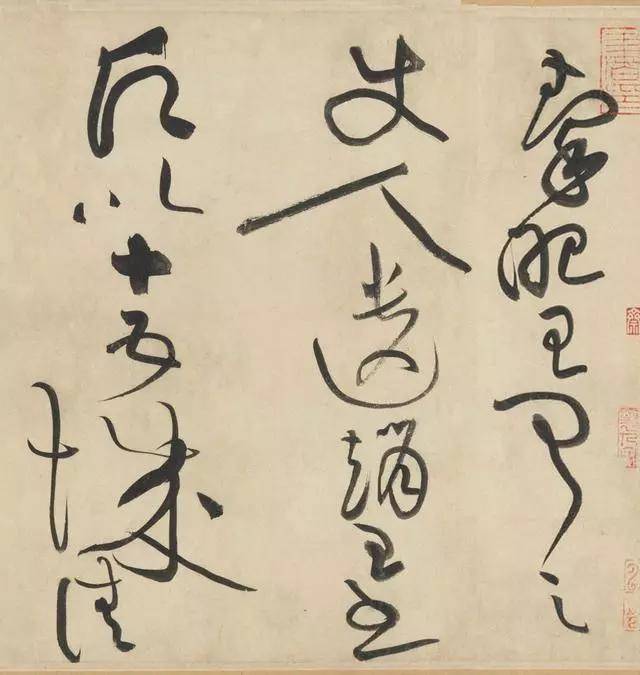 秦昭王聞之
使人遺趙王書
願以十五城請